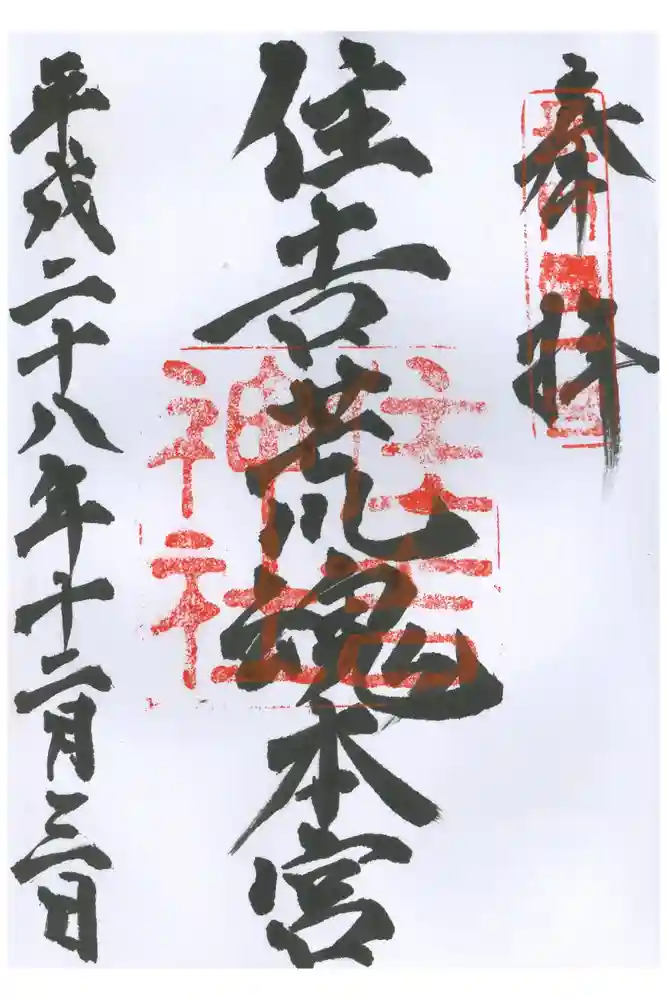 奉拝
住吉荒魂本宮
住吉神社
平成二十八年十二月三日